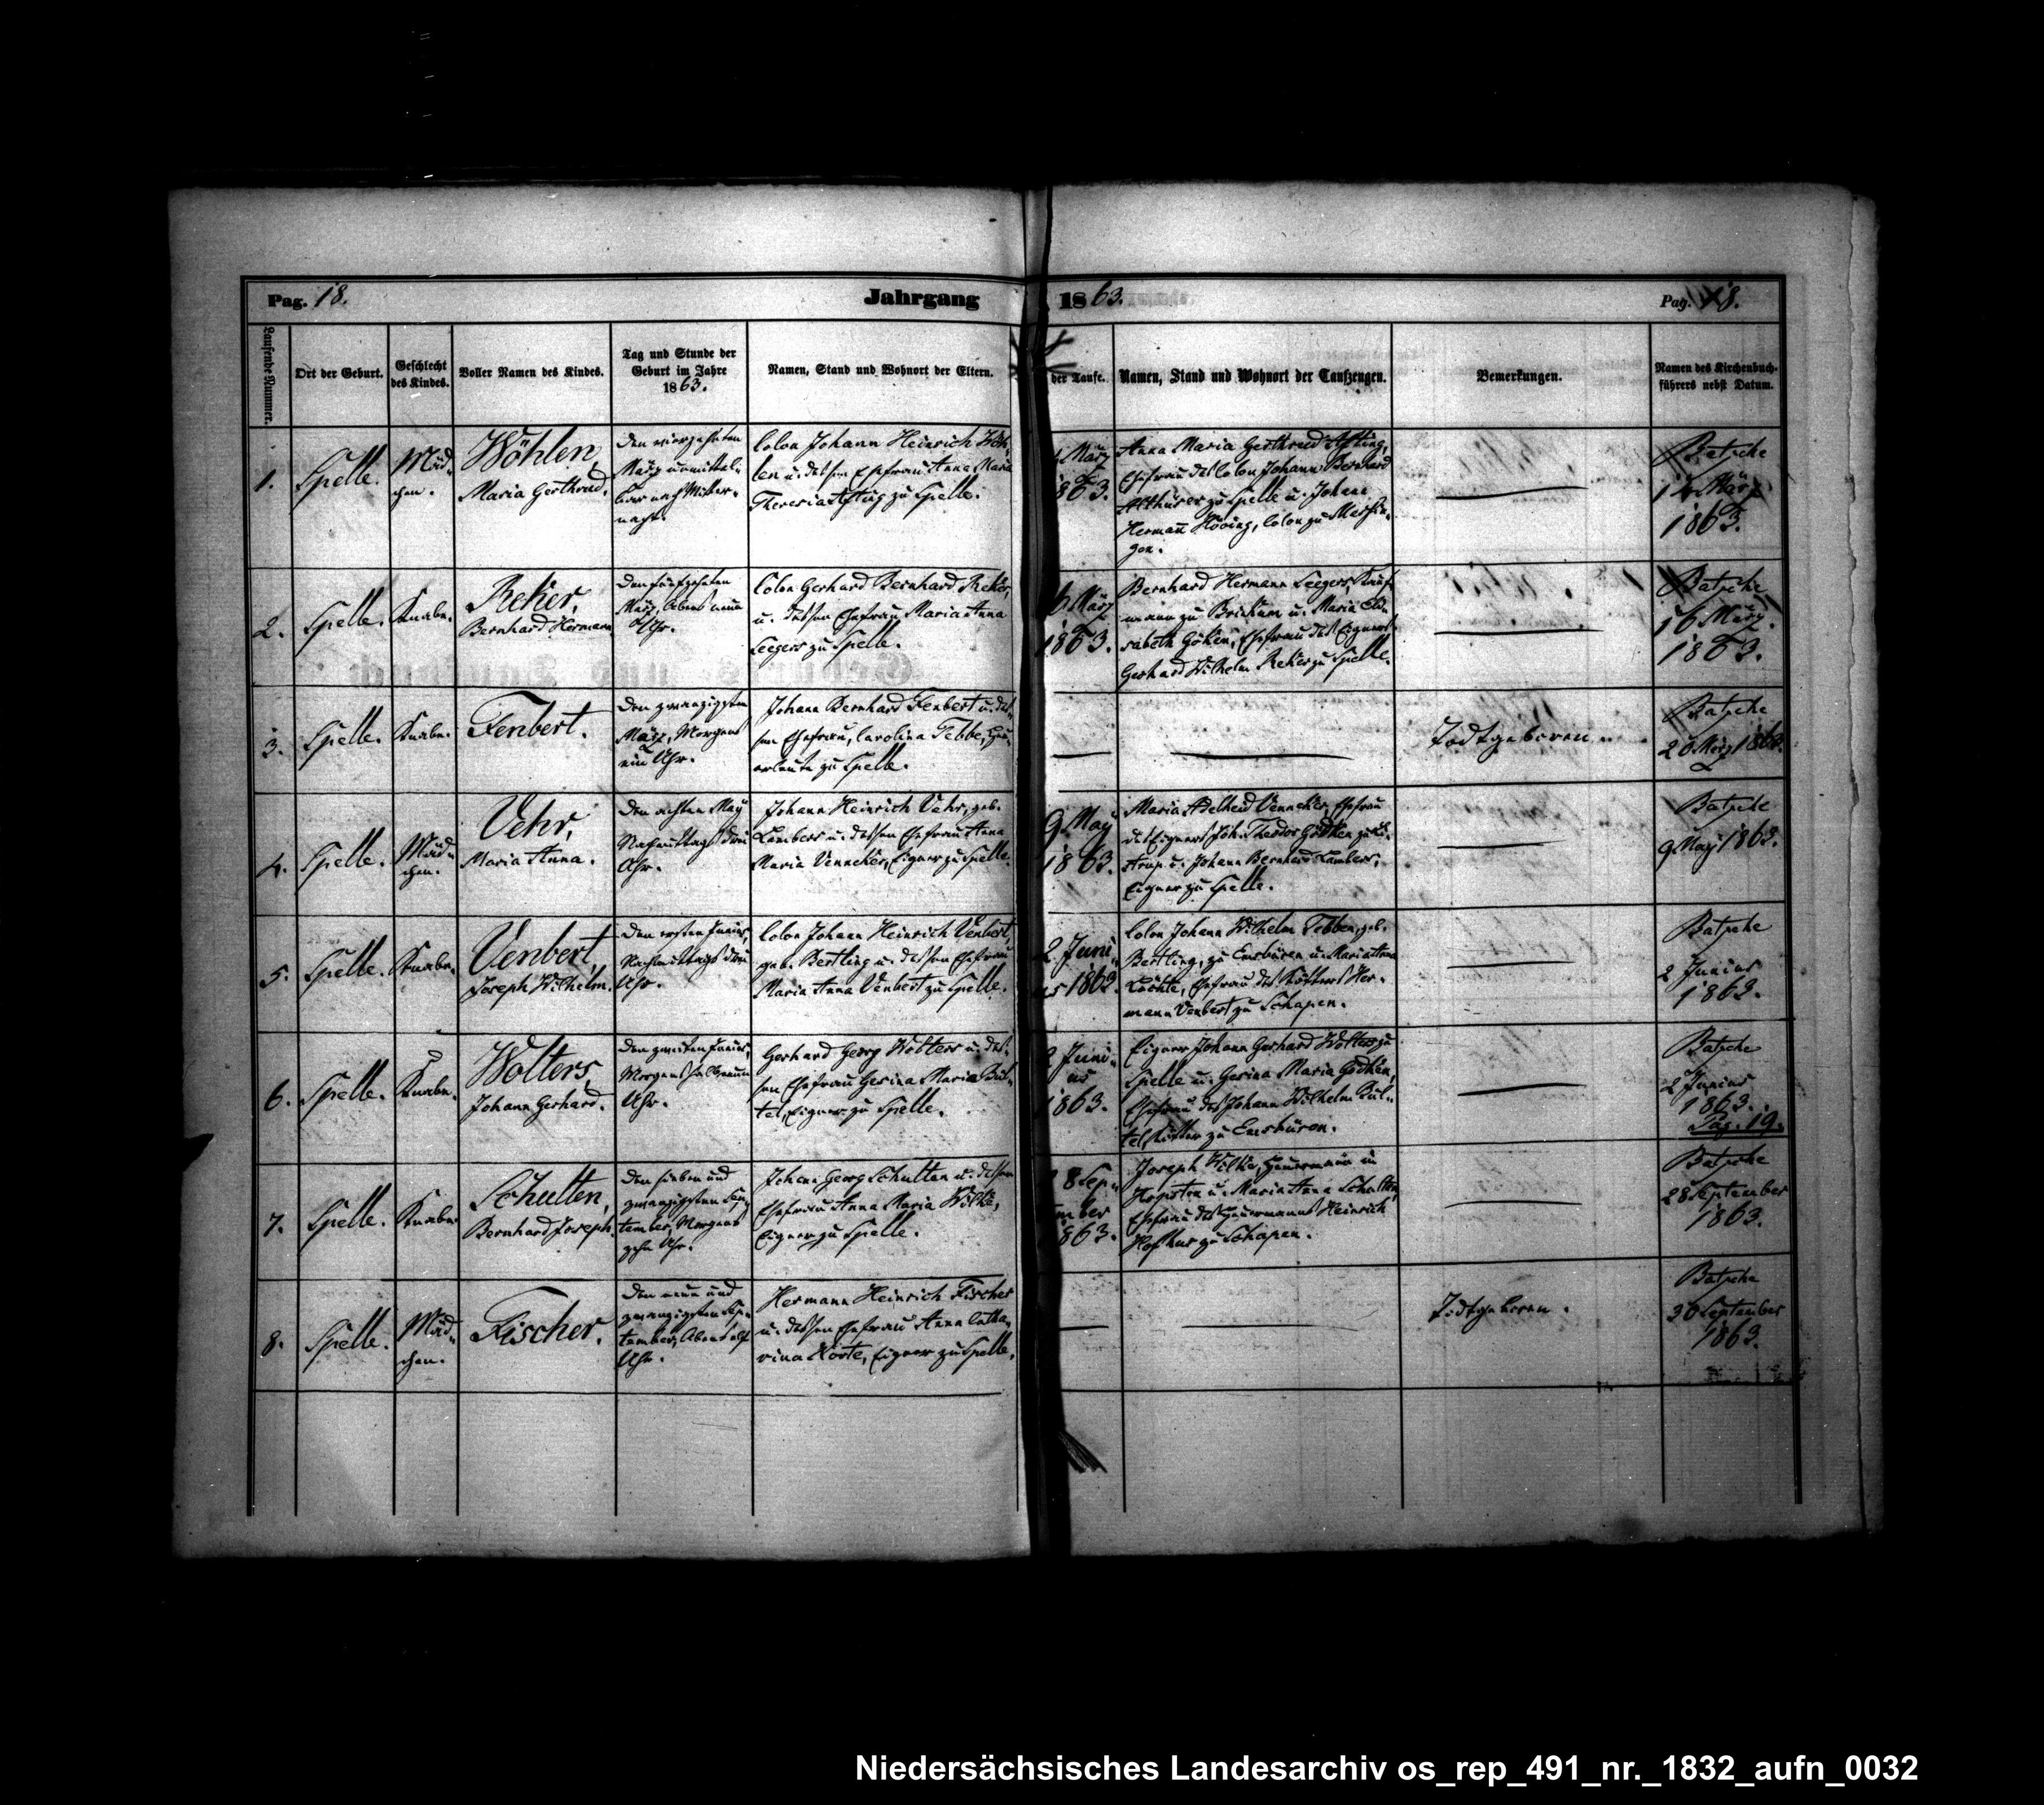 Pag. 18.
Jahrgang 1863.
Pag. 18.
Laufende Nummer.
Ort der Geburt.
Geschlecht
des Kindes.
Voller Namen des Kindes.
Tag und Stunde der
Geburt im Jahre
1863.
Namen, Stand und Wohnort der Eltern.
der Taufe.
Namen, Stand und Wohnort der Taufzeugen.
Bemerkungen.
Namen des Kirchenbuch-
führers nebst Datum.
1.
Spelle.
Mäd-
chen.
Wöhlen,
Maria Gerthrud.
Den vierzehnten
März unmittel-
bar nach Mitter-
nacht.
Colon Johann Heinrich Wöh-
len u. dessen Ehefrau Anna Maria
Theresia Afting zu Spelle.
März
1863.
Anna Maria Gerthrud Afting,
Ehefrau des Colon Johann Bernhard
zu Spelle u. Johann
Hermann Höving, Colon zu Messin-
gen.
Batsche
14 März
1863.
2.
Spelle.
Knabe.
Reker,
Bernhard Hermann
Den fünfzehnten
März, Abends neun
Uhr.
Colon Gerhard Bernhard Reker,
u. dessen Ehefrau Maria Anna
Seegers zu Spelle.
6 März
1863.
Bernhard Hermann Seegers, Kauf-
mann zu u. Maria Eli-
sabeth Göken, Ehefrau des Eigners
Gerhard Wilhelm Reker zu Spelle.
Batsche
16 März
1863.
3.
Spelle.
Knabe.
Fenbert.
Den zwanzigsten
März, Morgens
ein Uhr.
Johann Bernhard Fenbert u. des-
sen Ehefrau, Carolina Tebbe, Heu-
erleute zu Spelle.
Todtgeboren.
Batsche
20 März 1863.
4.
Spelle.
Mäd-
chen.
Vehr,
Maria Anna.
Den achten May
Nachmittags drei
Uhr.
Johann Heinrich Vehr, geb.
Lambers u. dessen Ehefrau Anna
Maria Venneker, Eigner zu Spelle.
9 May
1863.
Maria Adelheid Venneker, Ehefrau
des Eigners Joh. Theodor Gödken zu
u. Johann Bernhard Lambers,
Eigner zu Spelle.
Batsche
9 May 1863.
5.
Spelle.
Knabe.
Venbert,
Joseph Wilhelm.
Den ersten Junius,
Nachmittags drei
Uhr.
Colon Johann Heinrich Venbert,
geb. Bertling u. dessen Ehefrau
Maria Anna Venbert zu Spelle.
2 Juni-
us 1863.
Colon Johann Wilhelm Tebben, geb.
Bertling, zu Emsbüren u. Maria Anna
Ehefrau des Kötters Her-
mann Venbert zu Schapen.
Batsche
2 Junius
1863.
6.
Spelle.
Knabe.
Wolters,
Johann Gerhard.
Den zweiten Junius,
Morgens halb neun
Uhr.
Gerhard Georg Wolters u. des-
sen Ehefrau Gesina Maria Bül-
tel, Eigner zu Spelle.
2 Juni-
us
1863.
Eigner Johann Gerhard Wolters zu
Spelle u. Gesina Maria Gödken,
Ehefrau des Johann Wilhelm Bül-
tel, Kötter zu Emsbüren.
Batsche
2 Junius
1863.
Pag. 19.
7.
Spelle.
Knabe.
Schulten,
Bernhard Joseph.
Den sieben und
zwanzigsten Sep-
tember, Morgens
zehn Uhr.
Johann Georg Schulten u. dessen
Ehefrau Anna Maria Wilke,
Eigner zu Spelle.
8 Sep-
tember
1863.
Joseph Wilke, Heuermann in
Hopsten u. Maria Anna Schulten,
Ehefrau des Heuermanns Heinrich
zu Schapen.
Batsche
28 September
1863.
8.
Spelle.
Mäd-
chen.
Fischer.
Den neun und
zwanzigsten Sep-
tember, Abends elf
Uhr.
Hermann Heinrich Fischer
u. dessen Ehefrau Anna Catha-
rina Korte, Eigner zu Spelle.
Todtgeboren.
Batsche
30 September
1863.
Niedersächsisches Landesarchiv os_rep_491_nr._1832_aufn_0032